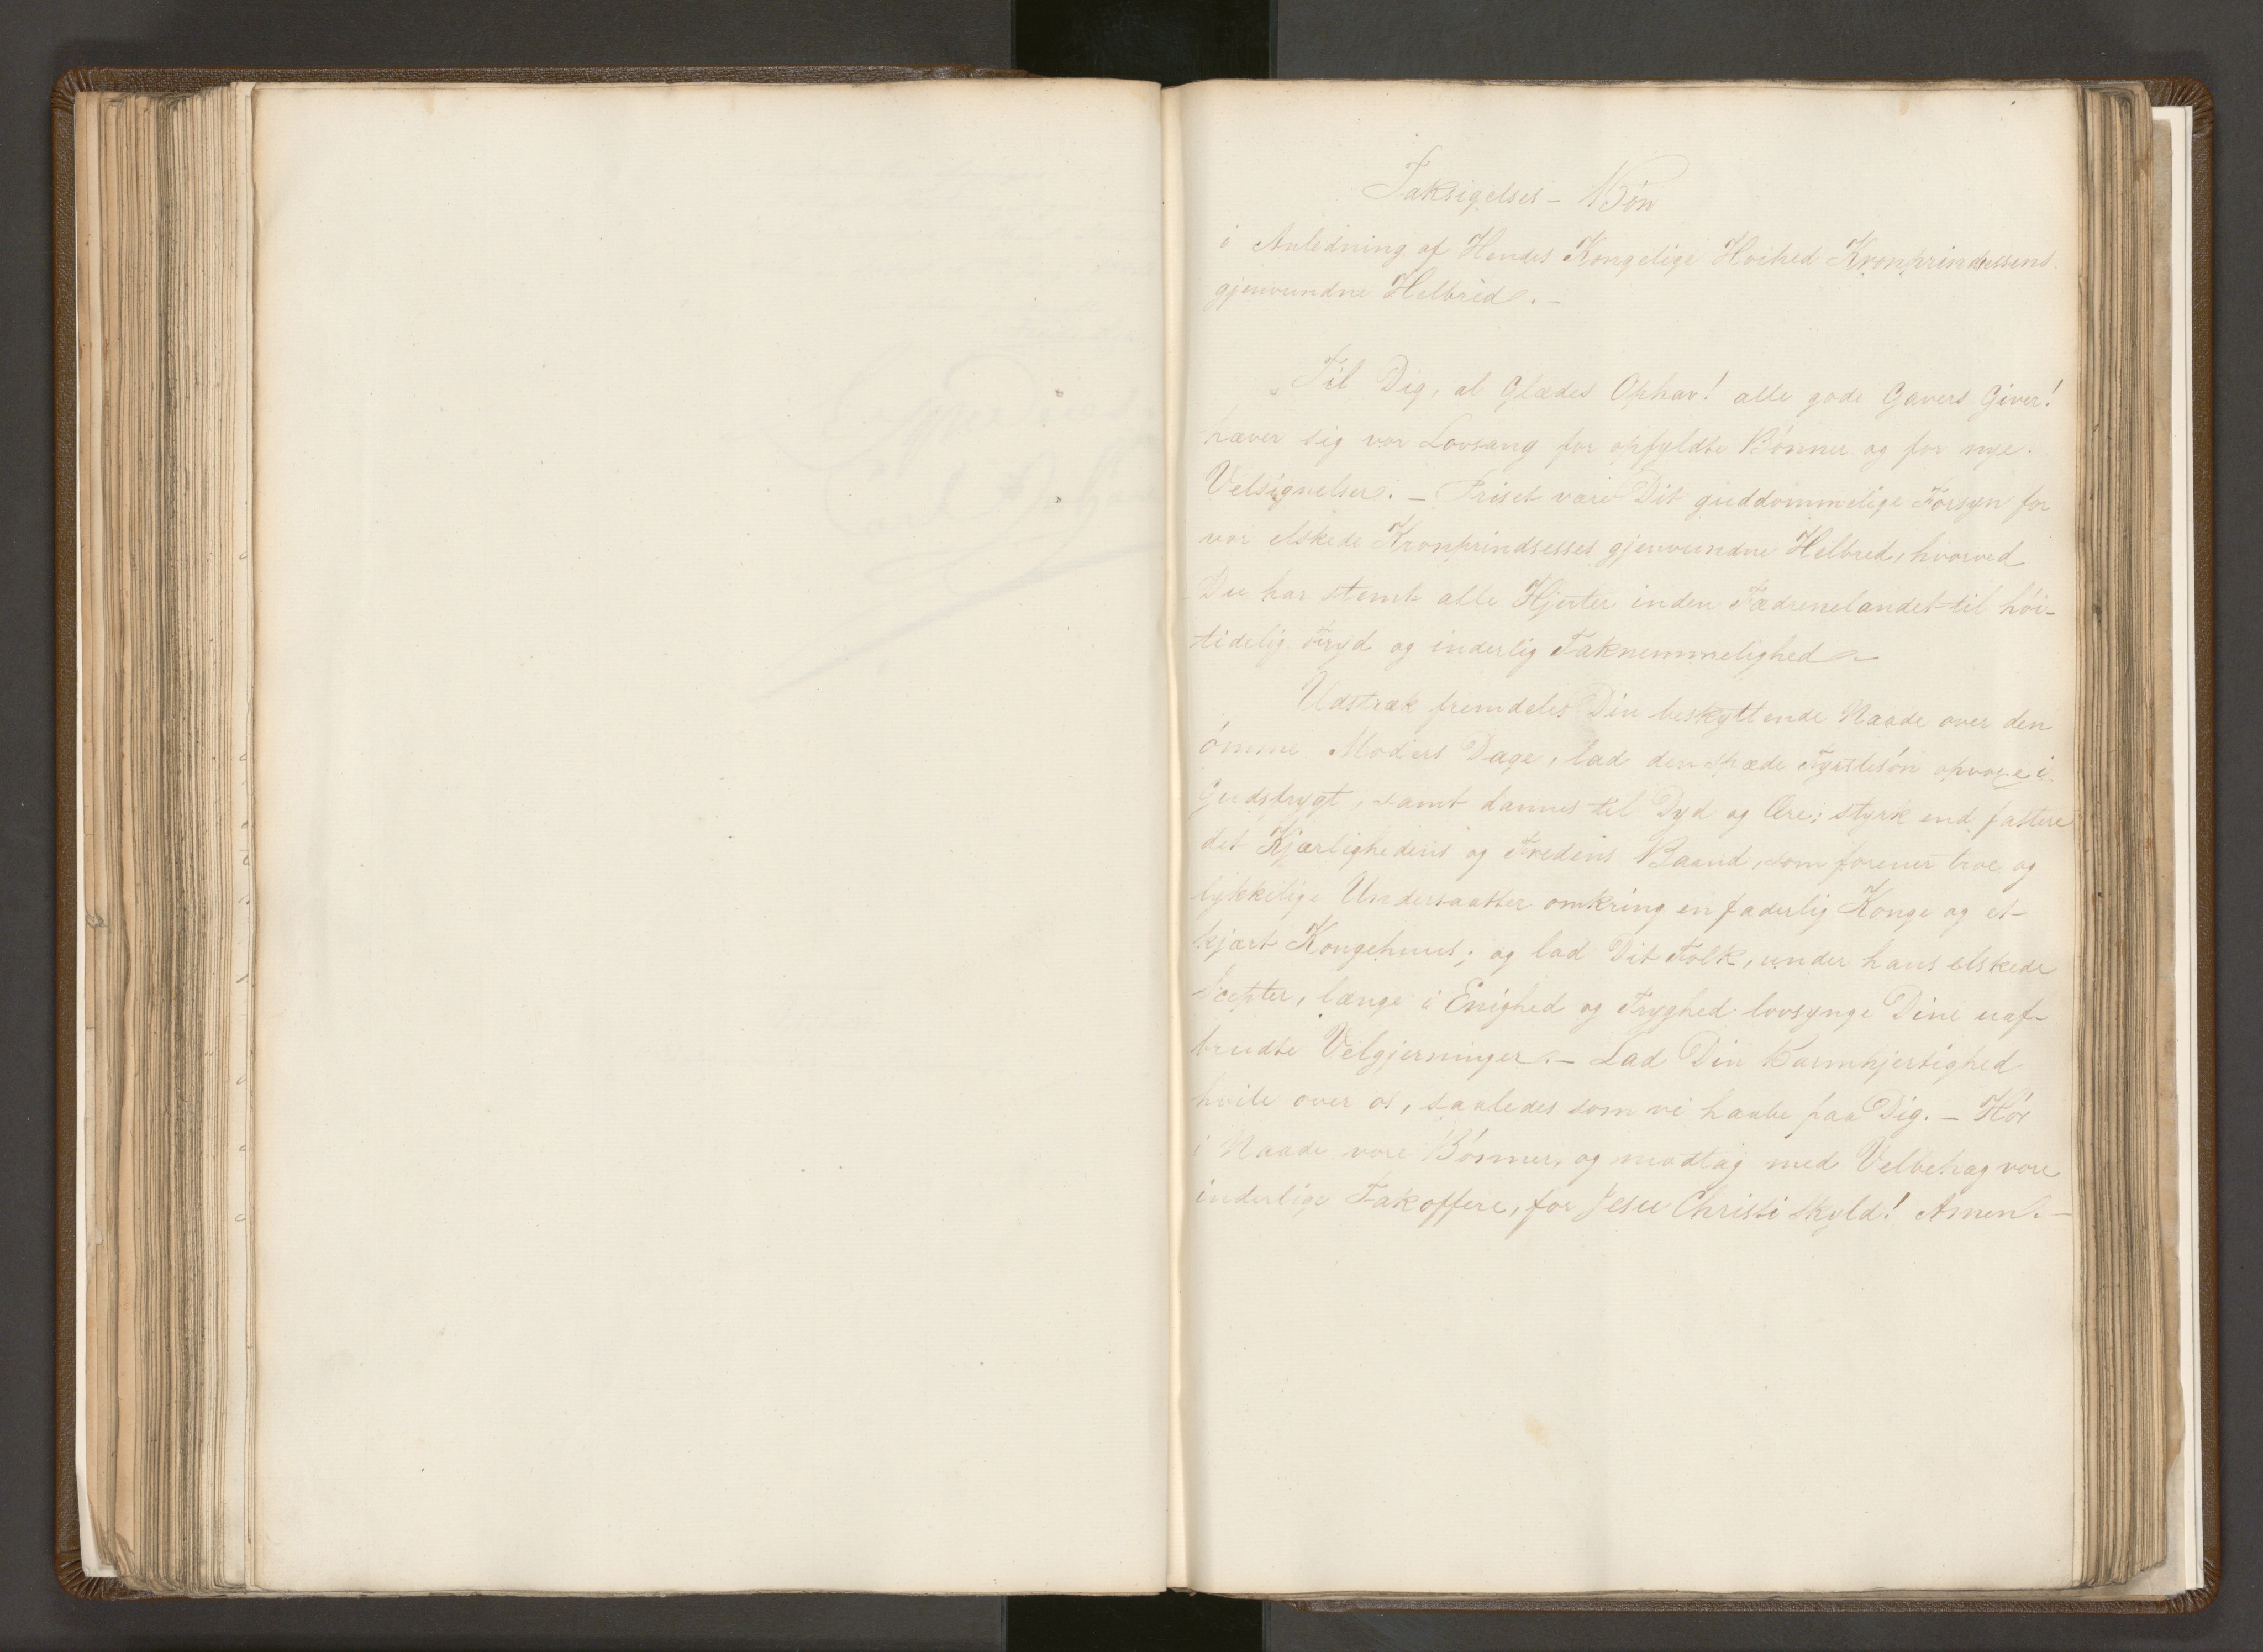 Taksigelses - Bön
i Anledning af Hendes Kongelige Höihed Kronprindsessens
gjenvundne Helbred. -
Til Dig, al Glædes Ophav! alle gode Gavers Giver!
hæver sig vor Lovsang for opfyldte Bönner og for nye
Velsignelser. - Priset være Dit guddommelige Forsyn for
vor elskede Kronprindsesses gjenvundne Helbred, hvorved
Du har stemt alle Hjerter inden Fædrenelandet til höi-
tidelig Fryd og inderlig Taknemmelighed -
Udstræk fremdeles Din beskyttende Naade over den
ömme Moders Dage, lad den spæde Fyrstesön opvoxe i
Gudsfrygt, samt dannes til Dyd og Ære; styrk end fastere
det Kjærlighedens og Fredens Baand, som forener troe og
lykkelige Undersaatter omkring en faderlig Konge og et
kjært Kongehuus; og lad Dit Folk, under hans elskede
Scepter, længe i Enighed og Tryghed lovsynge Dine uaf-
brudte Velgjerninger. - Lad Din Barmhjertighed
hvile over os, saaledes som vi haabe paa Dig. - Hör
i Naade vore Bönner, og modtag med Velbehag vore
inderlige Takoffere, for Jesu Christi Skyld! Amen. -